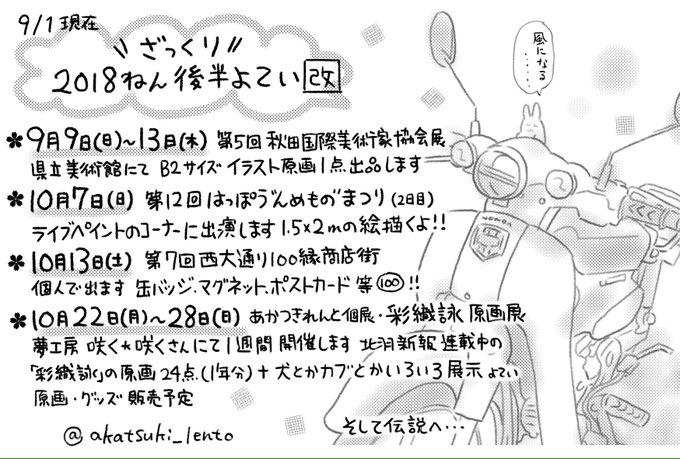 9/1 現在
ざっくり
2018ねん後半よてい 改
風になる……
* 9月9日(日)~13日(木) 第5回 秋田国際美術家協会展
県立美術館にて B2サイズ イラスト原画1点出品します
* 10月7日(日) 第12回 はっぽうんめものまつり (2日目)
ライブペイントのコーナーに出演します 1.5×2mの絵描くよ!!
HONDA
* 10月13日(土) 第7回 西大通り100縁商店街
個人で出ます 缶バッジ、マグネット、ポストカード 等 100 !!
* 10月22日(月)~28日(日) あかつきれんと個展・彩織詠 原画展
夢工房 咲く*咲くさんにて1週間開催します 北羽新報 連載中の
「彩織詠」の原画24点(1年分)+犬とかカブとかいろいろ展示 よてい
原画・グッズ 販売予定
@akatsuki_lento
そして伝説へ…